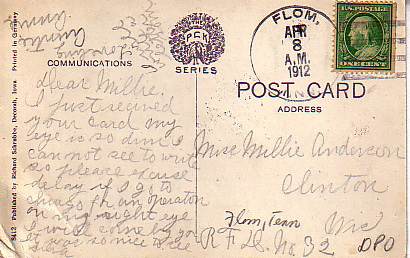 FLOM,
APR
8
A.M.
1912
U.S. POSTAGE
ONE CENT
PCK
SERIES
COMMUNICATIONS
POST CARD
ADDRESS
Dear Millie.
I just recived
your card my
eye is so dim I
cannot see to write
so please excuse
delay if I go to
for an operation
on my right eye
I will come by you
it was so nice to
Miss Millie Anderson
Clinton
Wis
R F D. No. 32
Flom, Tenn
DPO
5412 Published by Richard Decorah, Iowa Printed in Germany